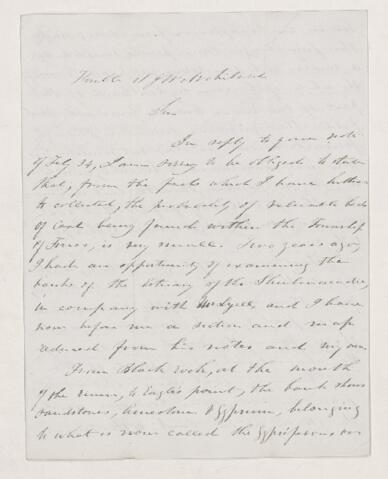 Sir
In reply to your note
of July 24, I am sorry to be obliged to state
that, from the facts which I have hitherto
collected, the probability of valuable beds
of Coal being found within the Township
of is very small. Two years ago,
I had an opportunity of examining the
banks of the estuary of the Shubenacadie,
in company with Mr Lyell, and I have
now before me a section and map
reduced from his notes and my own
From Black rock, at the mouth
of the river, to Eagle's point, the bank shows
Sandstones, limestone & Gypsum, belonging
to what is now called the Gypsiferous or